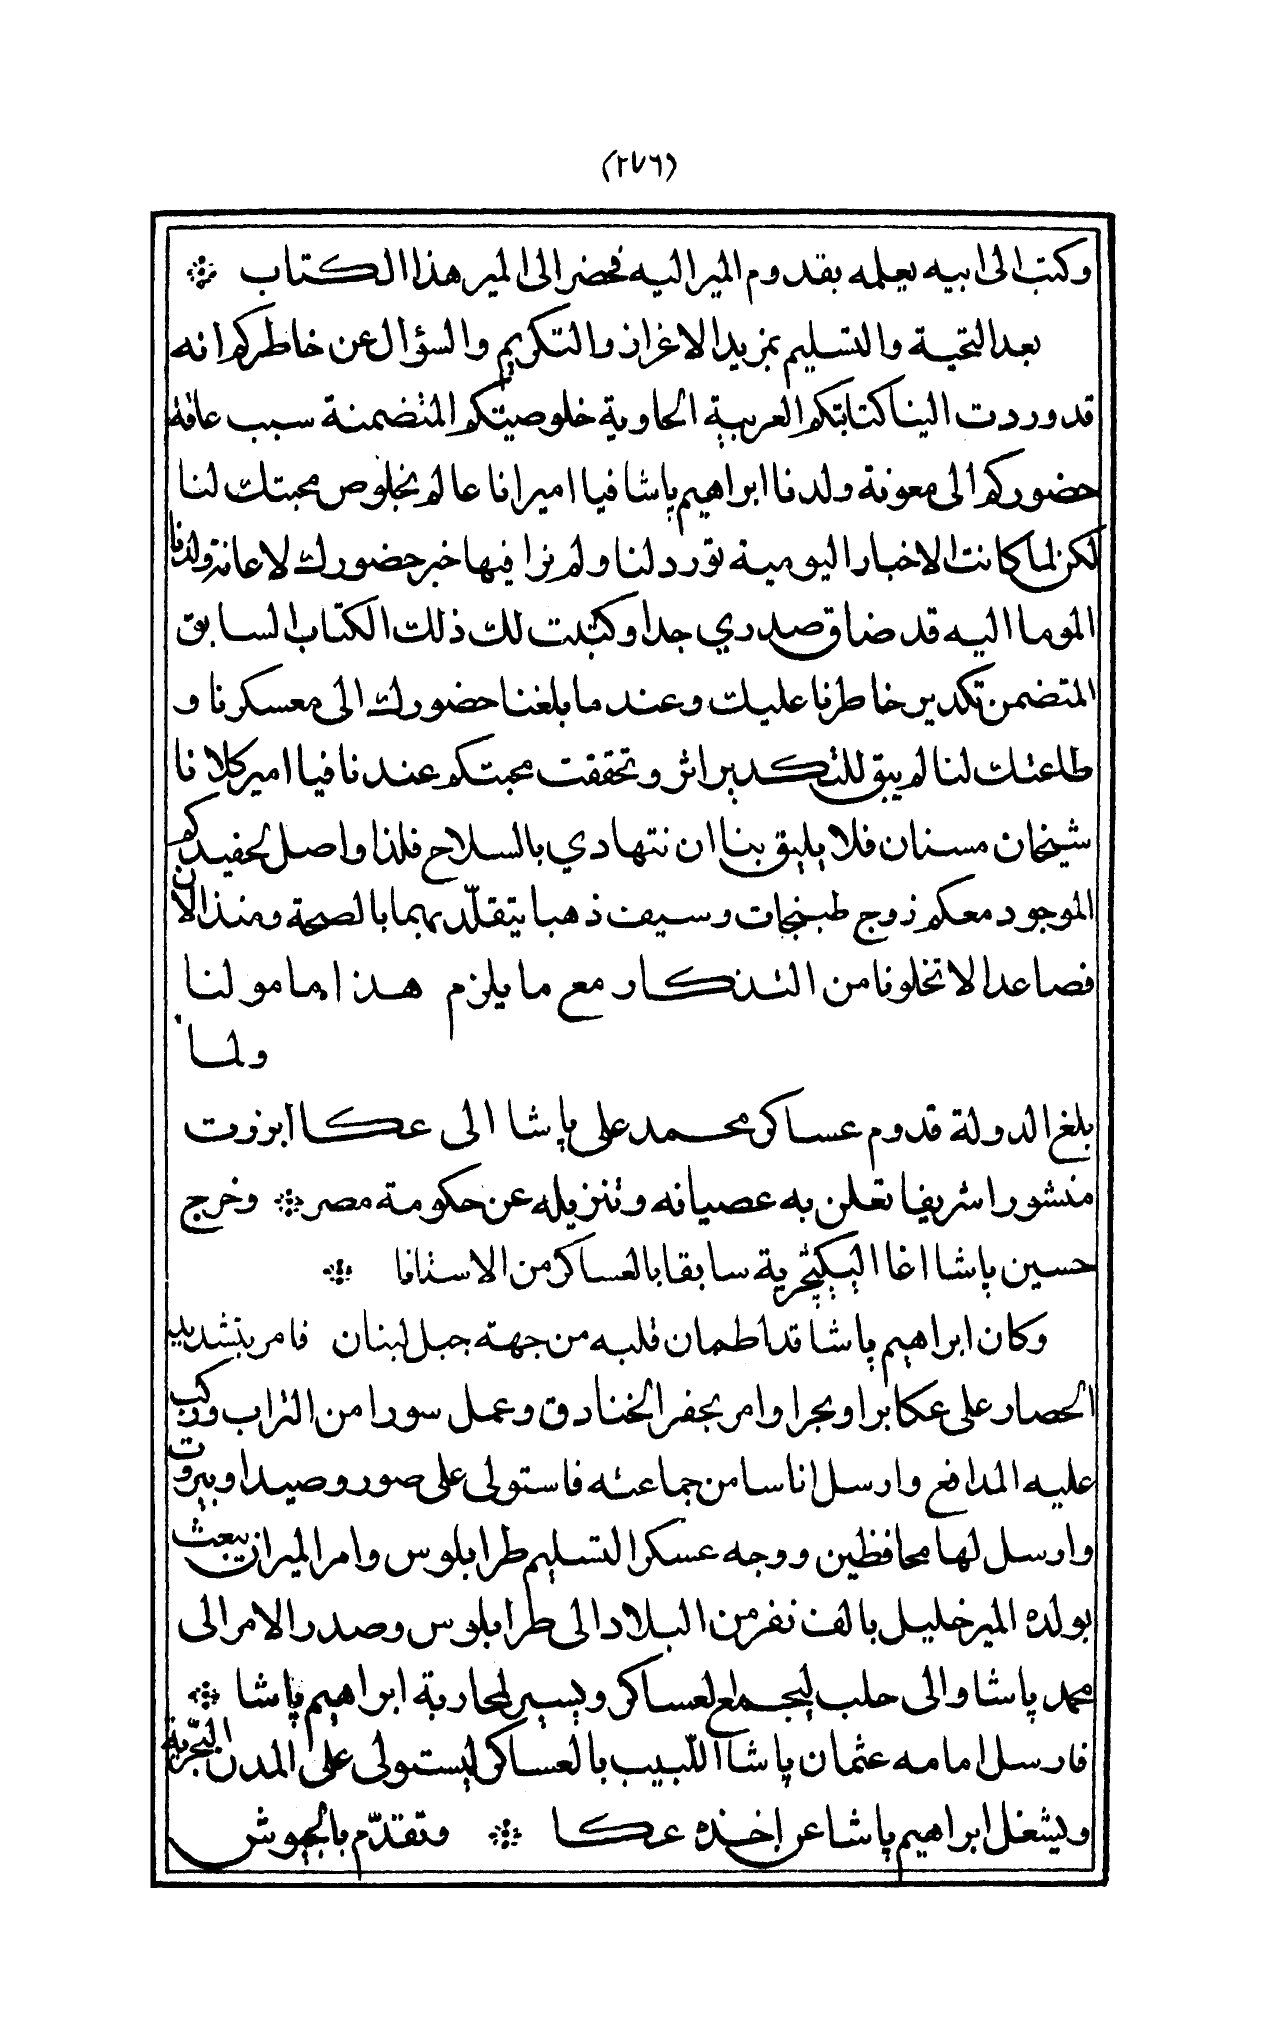 (٢٧٦)
وكتب الى ابيه يعلمه بقدوم المير اليه فحضر الى المير هذا الكتاب ❊
بعد التحية والتسليم بمزيد الاغزاز والتكريم والسؤال عن خاطركم انه
قد وردت الينا كتابتكم العربية الحاوية خلوصيتكم المتضمنة سبب عاقة
حضوركم الى معونة ولدنا ابراهيم پاشا فيا اميرانا عالم بخلوص محبتك لنا
لكن لما كانت الاخبار اليومية تورد لنا ولم نرا فيها خبر حضورك لاعانة ولدنا
الموما اليه قد ضاق صدري جدا وكتبت لك ذلك الكتاب السابق
المتضمن تكدير خاطرنا عليك وعند ما بلغنا حضورك الى معسكرنا و
طاعتك لنا لم يبق للتكدير اثر وتحققت محبتكم عندنا فيا امير كلانا
شيخان مسنان فلا يليق بنا ان نتهادي بالسلاح فلذا واصل لحفيدكم
الموجود معكم زوج طبنجات وسيف ذهبا يتقلّد بهما بالصحة ومنذ الآن
فصاعدا لا تخلونا من التذكار مع ما يلزم هذا مامولنا
ولما
بلغ الدولة قدوم عساكر محمد علي پاشا الى عكا ابرزت
منشورا شريفا تعلن به عصيانه وتنزيله عن حكومة مصر ❊ وخرج
حسين پاشا اغا اليكيچرية سابقا بالعساكر من الاستانا ❊
وكان ابراهيم پاشا قد اطمان قلبه من جهة جبل لبنان فامر بتشديد
الحصار على عكا برا وبحرا وامر بحفر الخنادق وعمل سورا من التراب وركب
عليه المدافع وارسل اناسا من جماعته فاستولى على صور وصيدا وبيروت
وارسل لها محافظين ووجه عسكرا لتسليم طرابلوس وامر المير ان يبعث
بولده المير خليل بالف نفر من البلاد الى طرابلوس وصدر الامر الى
محمد پاشا والى حلب ليجمع العساكر ويسير لمحاربة ابراهيم پاشا ❊
فارسل امامه عثمان پاشا اللبيب بالعساكر ليستولى على المدن البحرية
ويشغل ابراهيم پاشا عن اخذه عكا ❊ وتقدّم بالجيوش